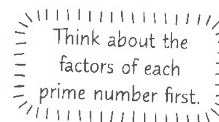 Think about the
factors of each
prime number first.